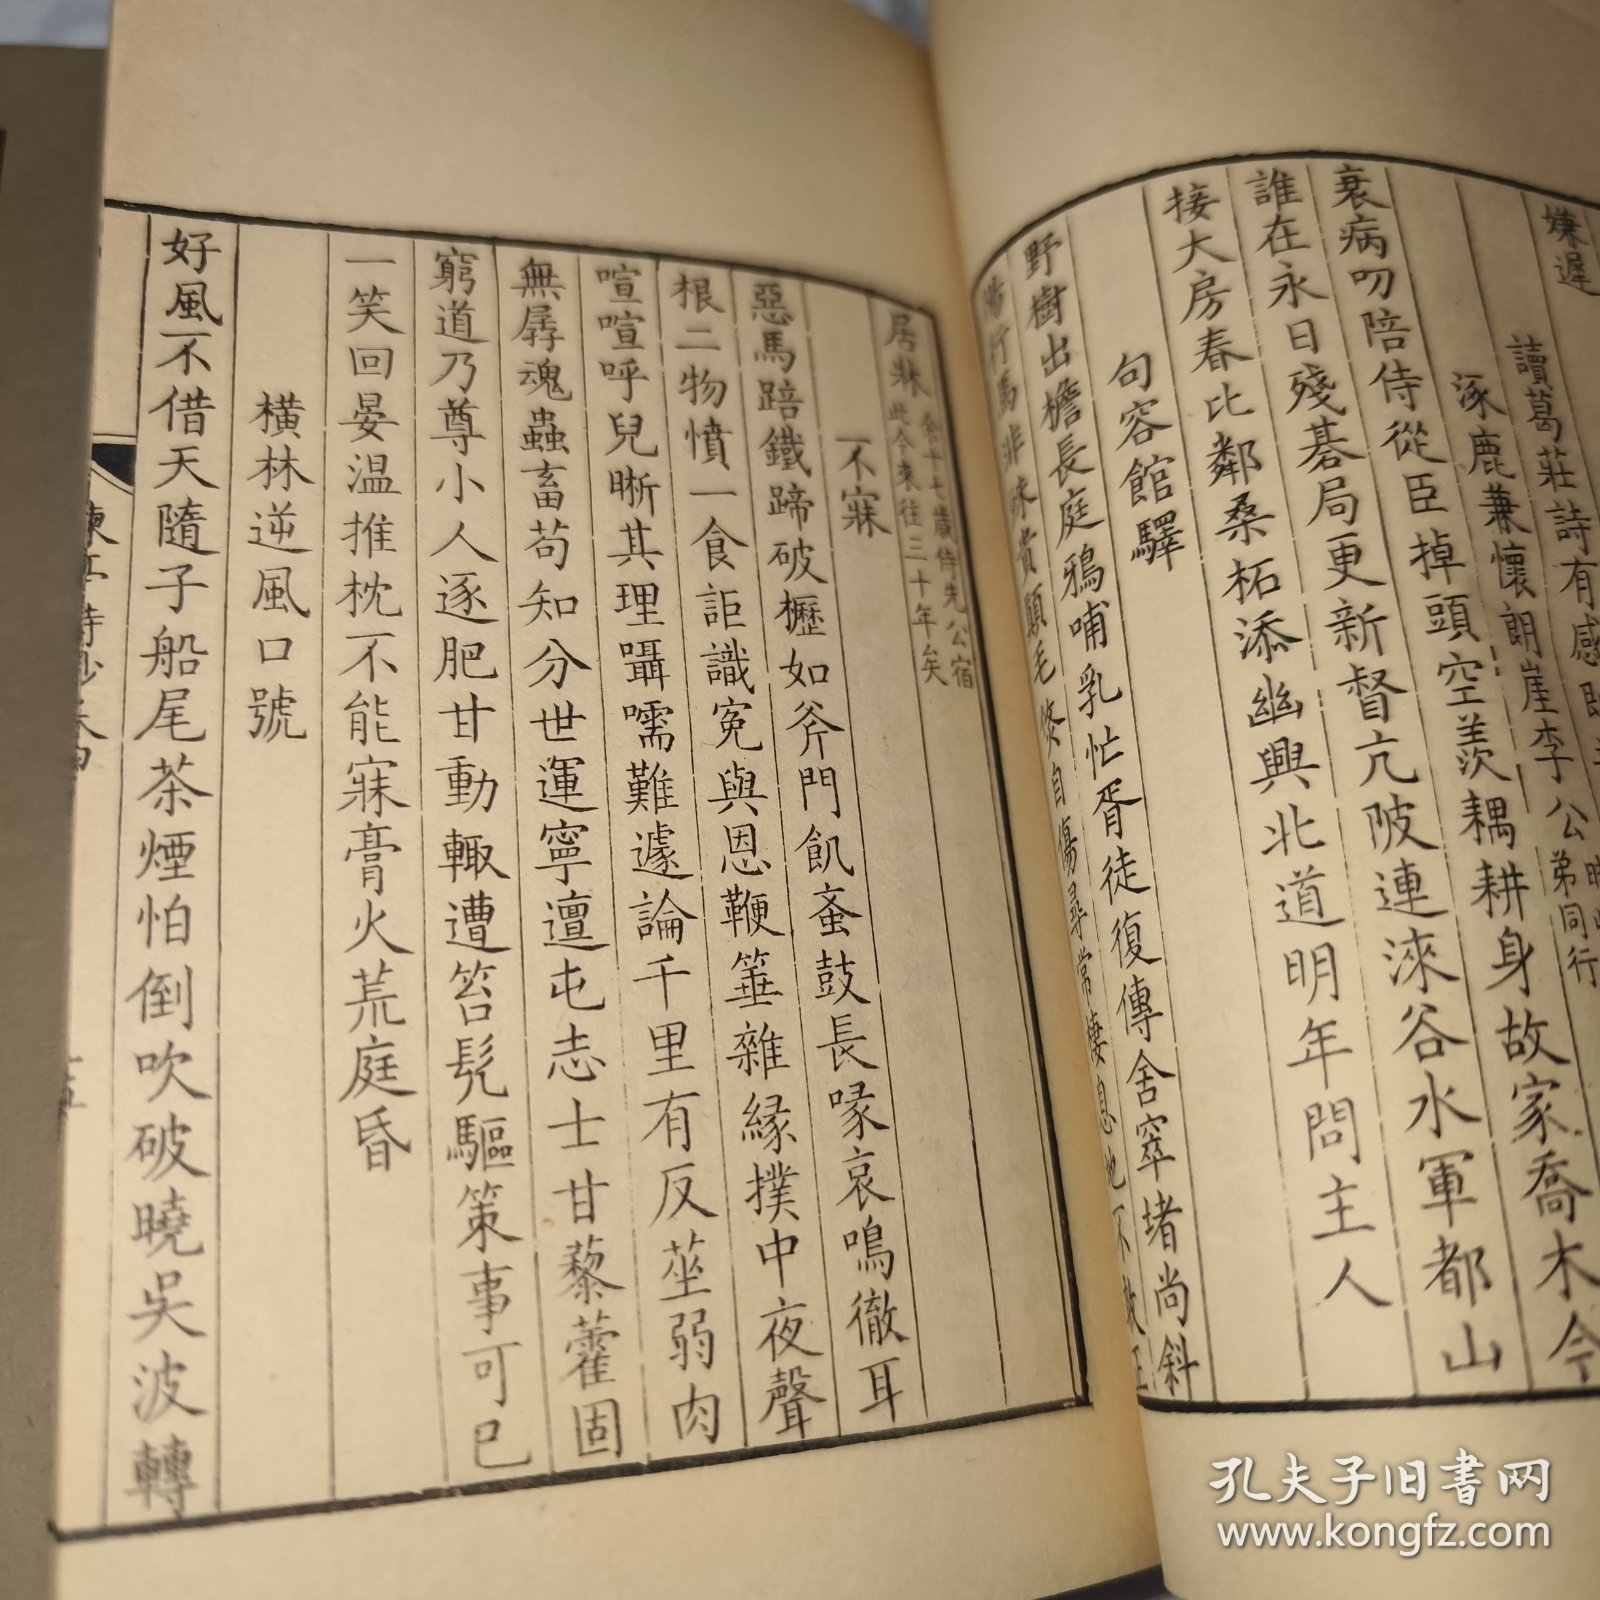 嫌遲
讀葛莊詩有感即
涿鹿兼懷朗崖李公弟同行
衰病叨陪侍從臣掉頭空羨耦耕身故家喬木今
誰在永日殘碁局更新督亢陂連淶谷水軍都山
接大房春比鄰桑柘添幽興北道明年問主人
句容館驛
野樹出檐長庭鴉哺乳忙胥徒復傳舍窣堵尚斜
行馬非殊貴顛毛倐自傷尋常棲息地不敢
居牀余十七歲侍先公宿此今來往三十年矣
不寐
惡馬踣鐵蹄破櫪如斧門飢蚉鼓長喙哀鳴徹耳
根二物憤一食詎識寃與恩鞭箠雜緣撲中夜聲
喧喧呼兒晰其理囁嚅難遽論千里有反莝弱肉
無孱魂蟲畜苟知分世運寧邅屯志士甘藜藿固
窮道乃尊小人逐肥甘動輙遭笞髠驅策事可已
一笑回晏温推枕不能寐膏火荒庭昏
橫林逆風口號
好風不借天隨子船尾茶煙怕倒吹破曉吳波轉
楝亭詩鈔卷四